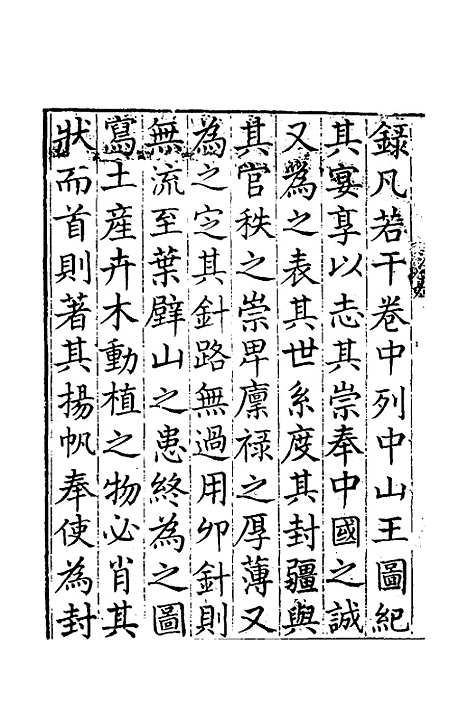 錄凡若干卷中列中山王圖紀
其宴享以志其崇奉中國之誠
又為之表其世系度其封疆與
其官秩之崇卑廩祿之厚薄又
為之定其針路無過用卯針則
無流至葉壁山之患終為之圖
寫土産卉木動植之物必肖其
狀而首則著其揚帆奉使為封